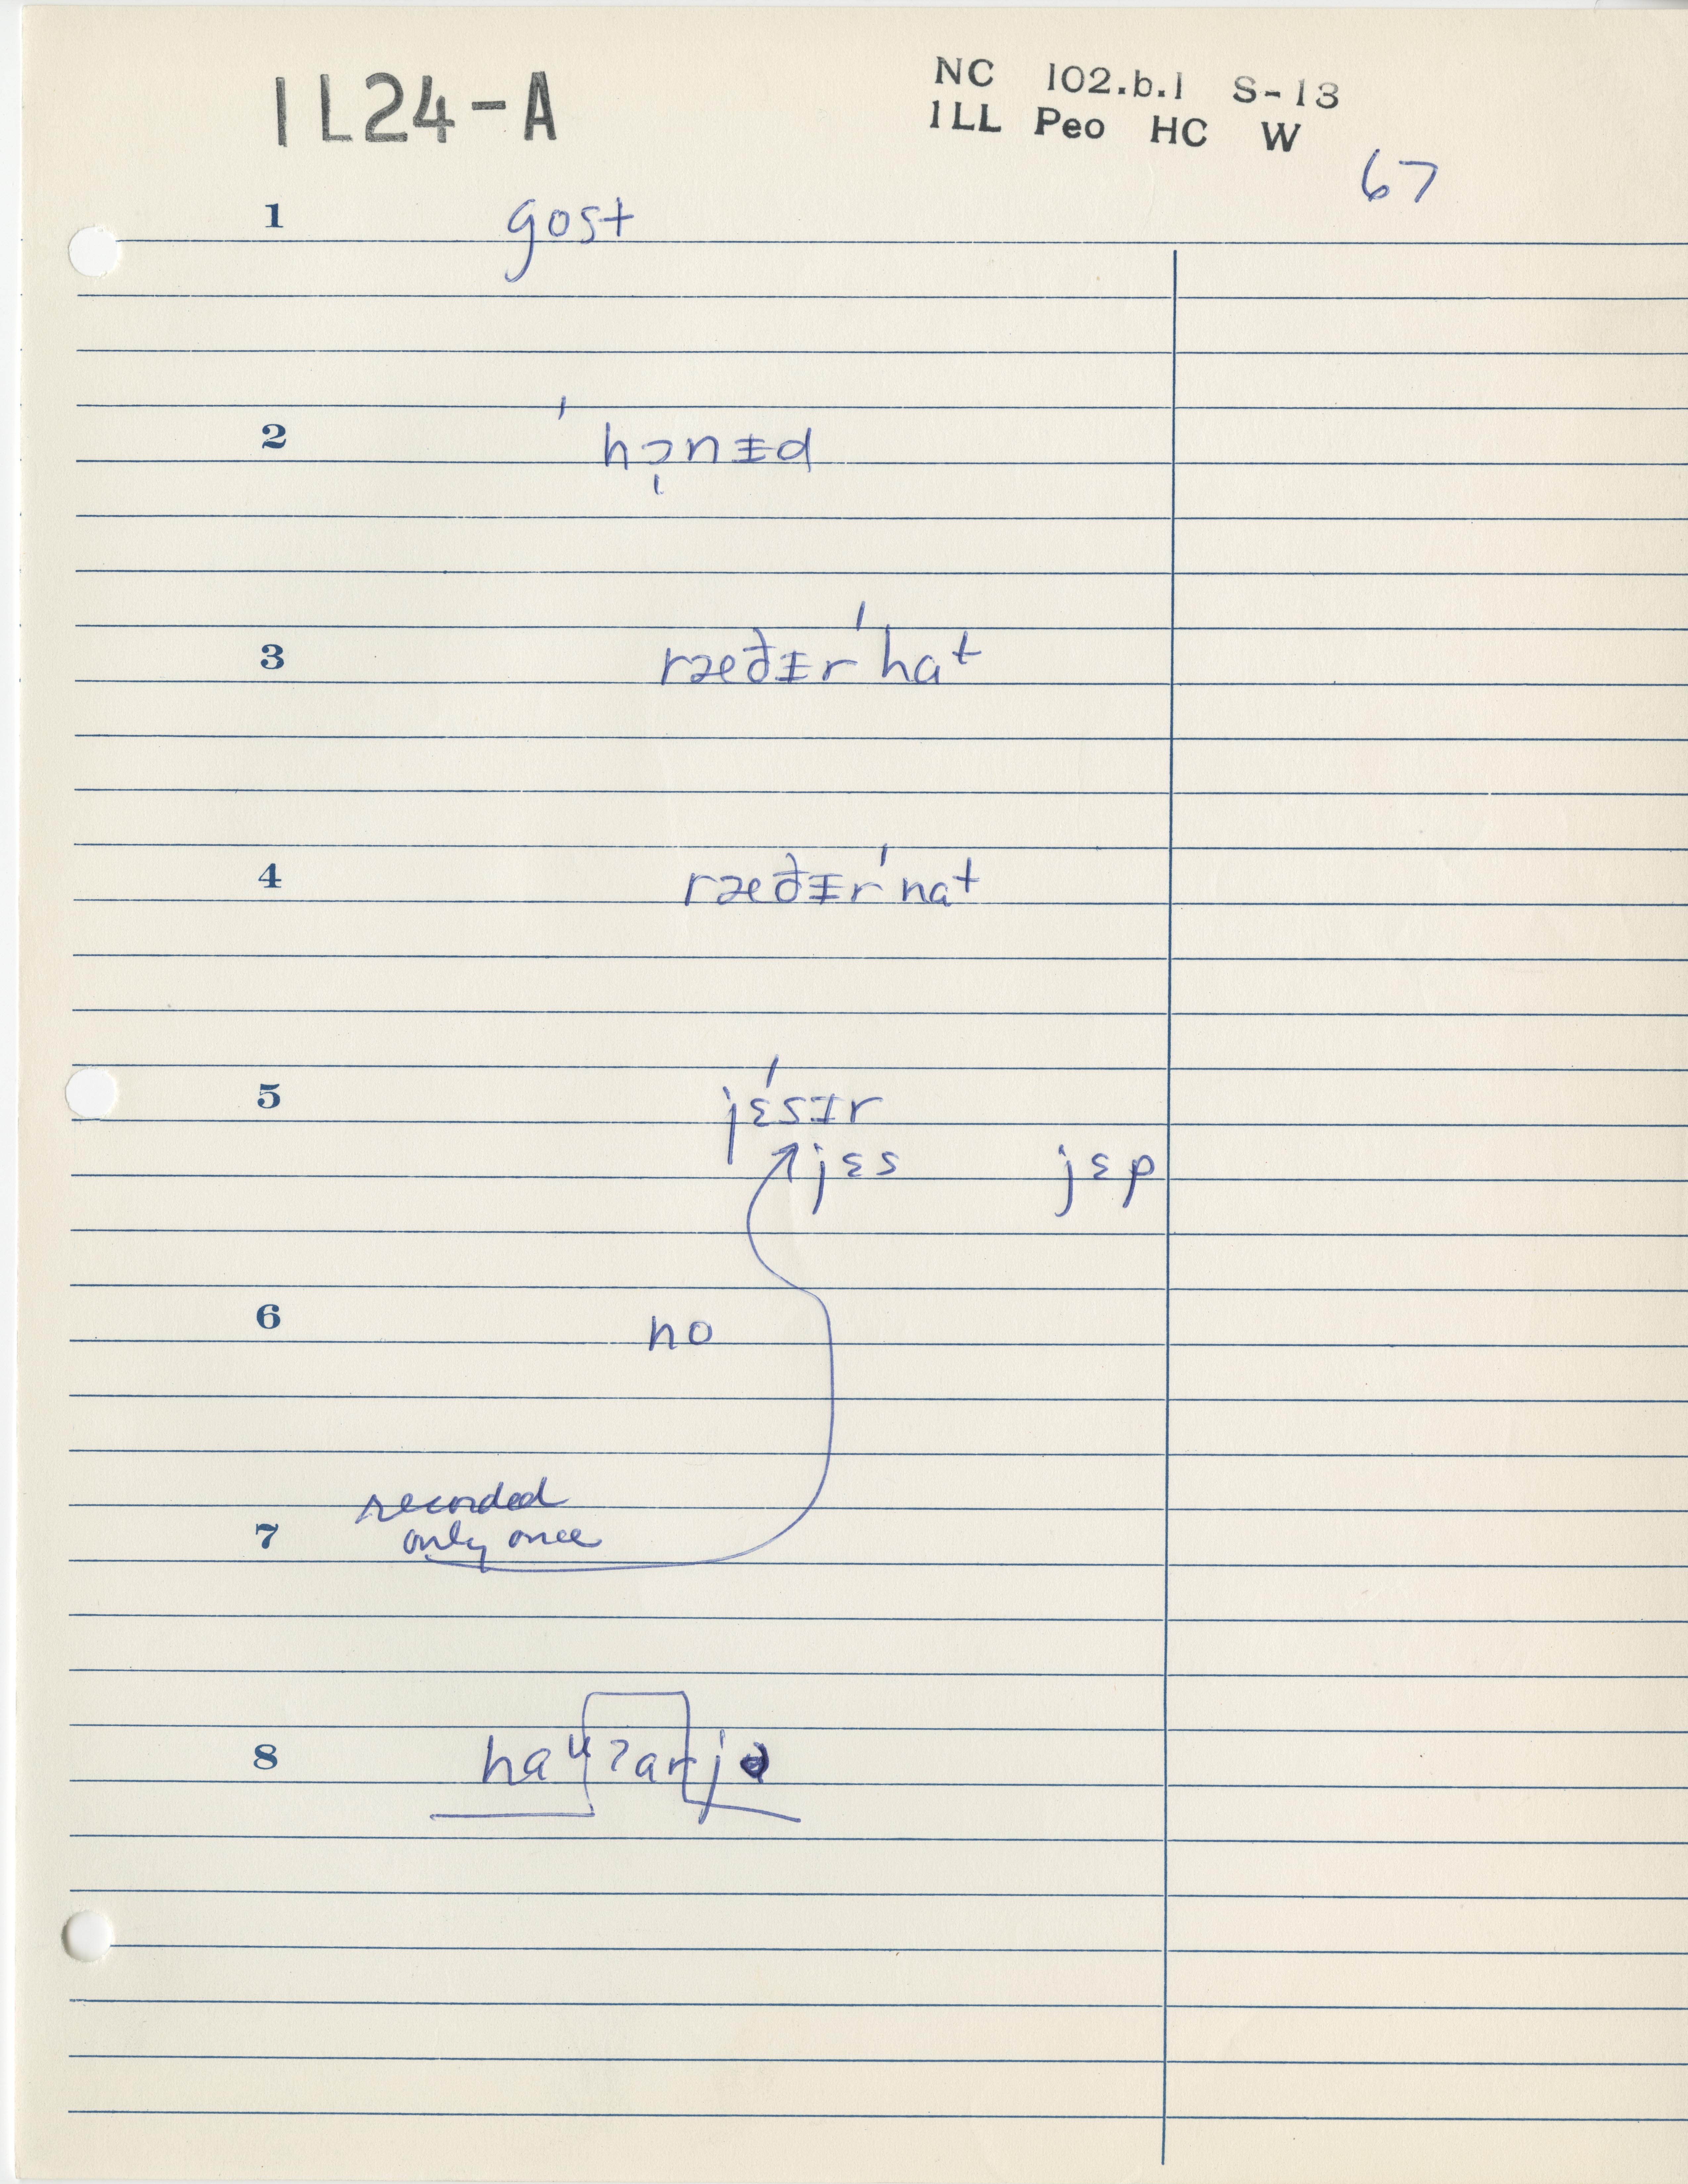 1L24-A
NC 102.b.1 S-13
ILL Peo HC W
67
1 gost
2 ˈhɔ̩nɪ̵d
3 ræðɪ̵rˈhaᵗ
4 ræðɪ̵rˈnaᵗ
5 jɛ́sɪ̵r
jɛs jɛp
6 no
recorded
7 only once
8 haᶸʔarjə